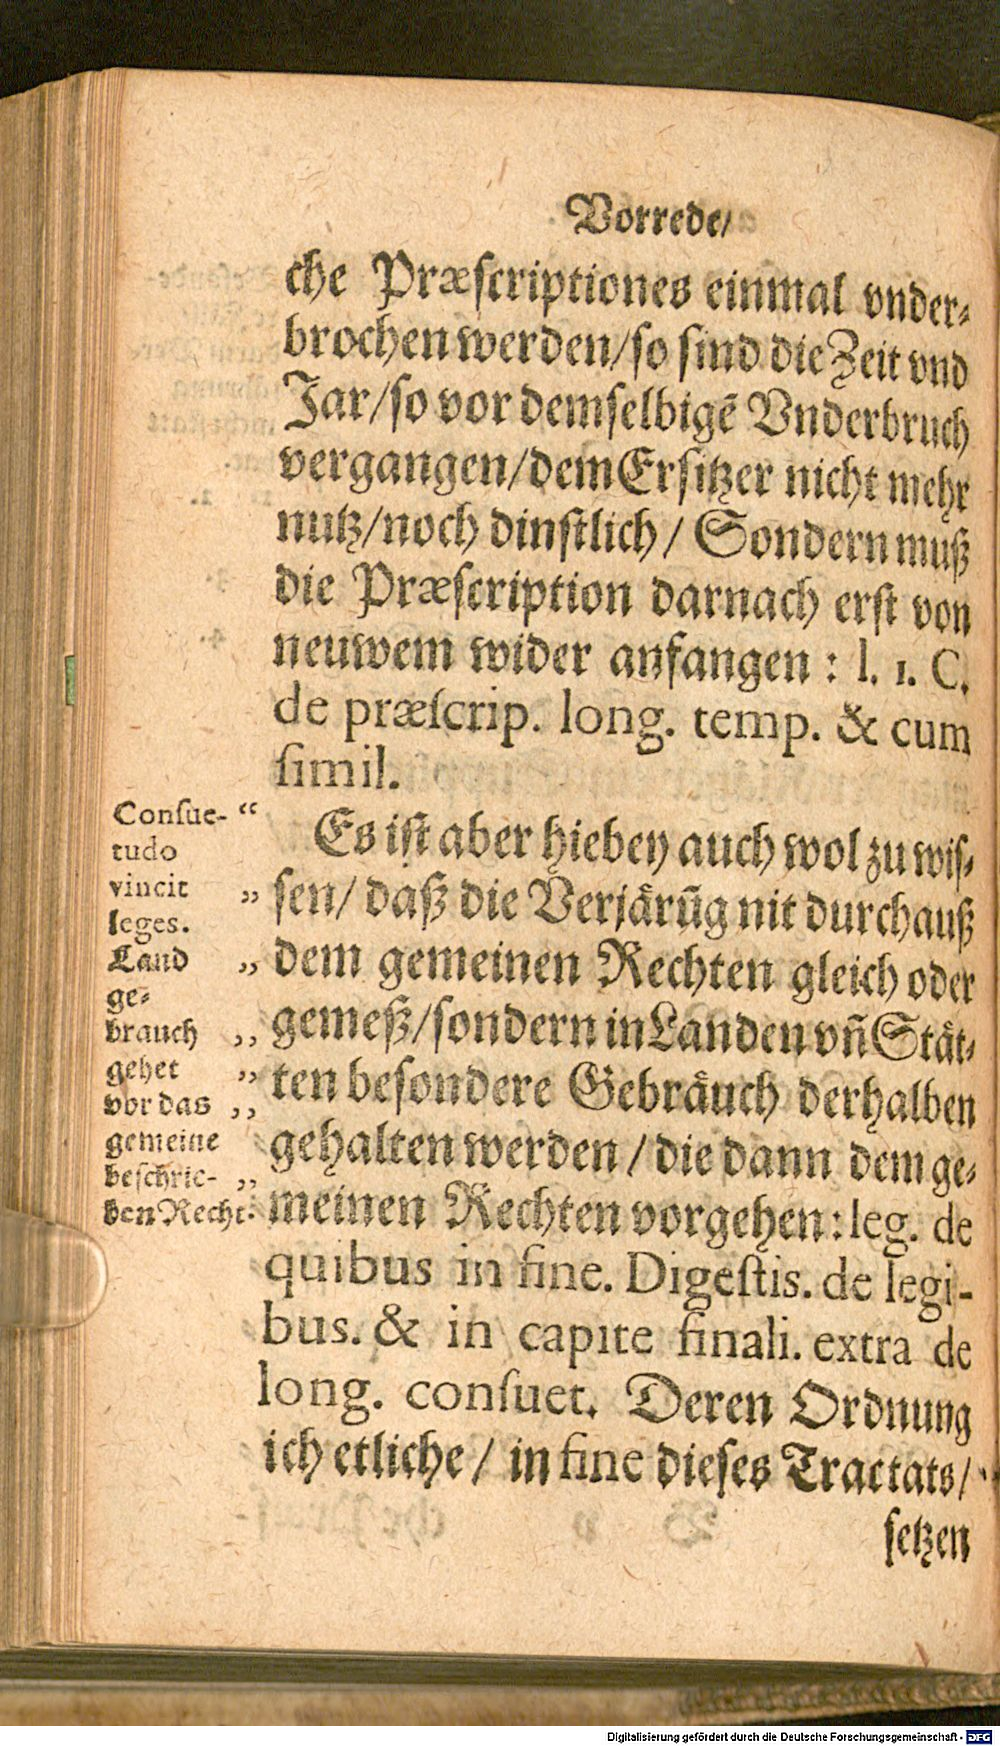 Vorrede/
che Præſcriptiones einmal vnder⸗
brochen werden/ſo ſind die Zeit vnd
Jar/ſo vor demſelbigẽ Vnderbruch
vergangen/dem Erſitzer nicht mehr
nutz/noch dinſtlich/ Sondern muß
die Præſcription darnach erſt von
neuwem wider anfangen : l. 1. C.
de præſcrip. long. temp. & cum
ſimil.
Es iſt aber hiebey auch wol zu wiſ⸗
ſen/ daß die Verjaͤrũg nit durchauß
dem gemeinen Rechten gleich oder
gemeß/ſondern in Landen vñ Staͤt⸗
ten beſondere Gebraͤuch derhalben
gehalten werden / die dann dem ge⸗
meinen Rechten vorgehen : leg. de
quibus in fine. Digeſtis. de legi-
bus. & in capite finali. extra de
long. conſuet. Deren Ordnung
ich etliche / in fine dieſes Tractats/
ſetzen
Conſue- “
tudo
vincit „
leges.
Land „
ge⸗
brauch „
gehet „
vor das „
gemeine
beſchrie- „
ben Recht.
Digitalisierung gefördert durch die Deutsche Forschungsgemeinschaft - DFG